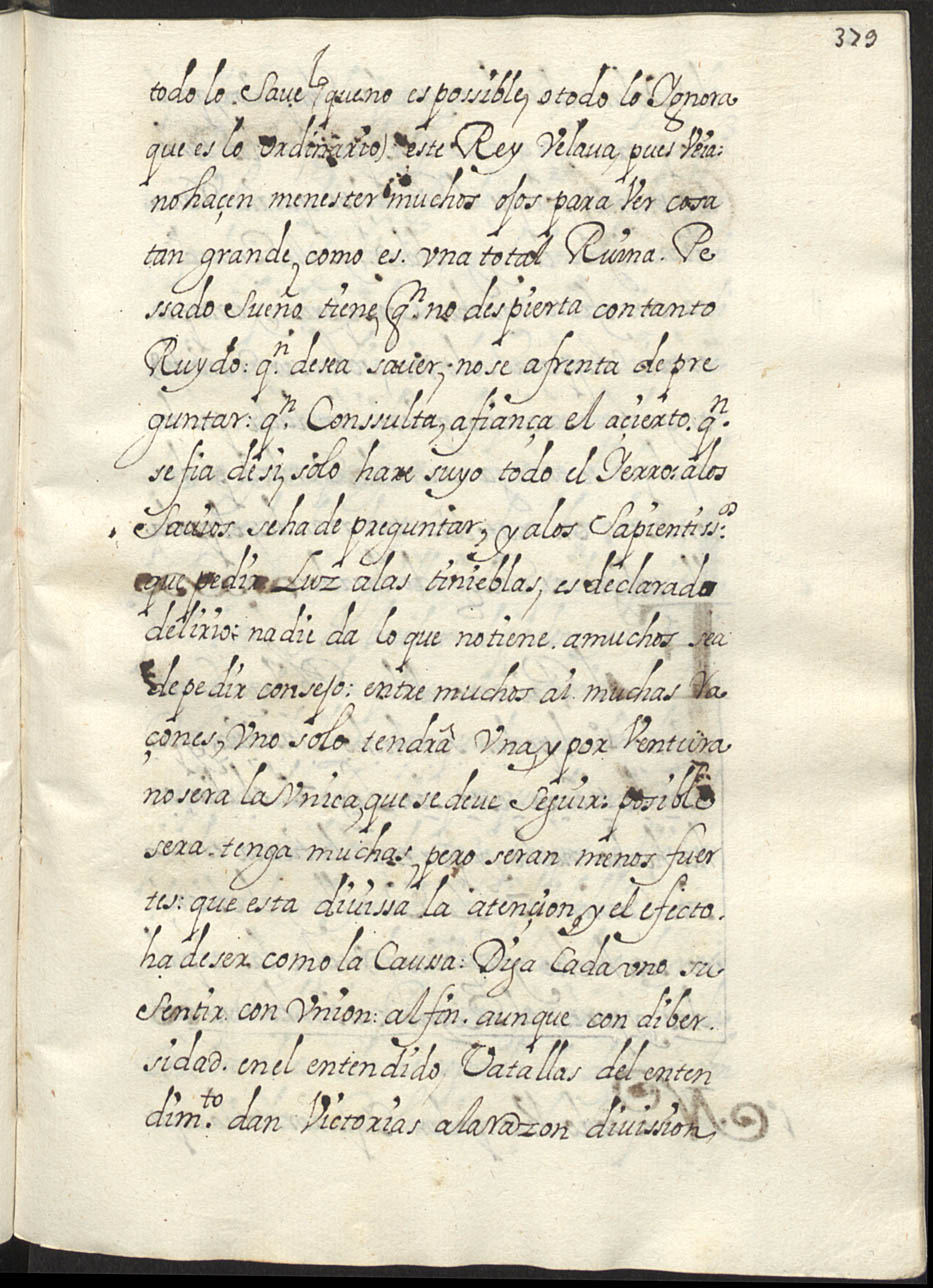 379
todo lo Saue (lo que no es possible, o todo lo Ygnora
que es lo ordinario) este Rey Velaua, pues Veia:
no haçen menester muchos ojos para Ver cosa
tan grande, como es. vna total Ruina. Pe
ssado Sueño tiene, qn. no despierta con tanto
Ruydo: qn. desea sauer, no se afrenta de pre
guntar: qn. Conssulta, afiança el açierto. qn.
se fia de si, solo hace suyo todo el Yerro: a los
Sauios se ha de preguntar, y a los Sapientiss.os
que pedir Luz a las tinieblas, es declarado
delirio: nadie da lo que no tiene. a muchos sea
de pedir consejo: entre muchos ai muchas Ra
çones, Vno solo tendrâ Vna, y por Ventura
no sera la Vnica, que se deve Seguir: posible
sera. tenga muchas, pero seran menos fuer
tes: que esta diuissa la atençion, y el efecto.
ha de ser como la Caussa: Diga Cada vno su
Sentir con Vnion: al fin. aunque con diber.
sidad. en el entendido, Vatallas del enten
dim.to dan Victorias a la razon division,